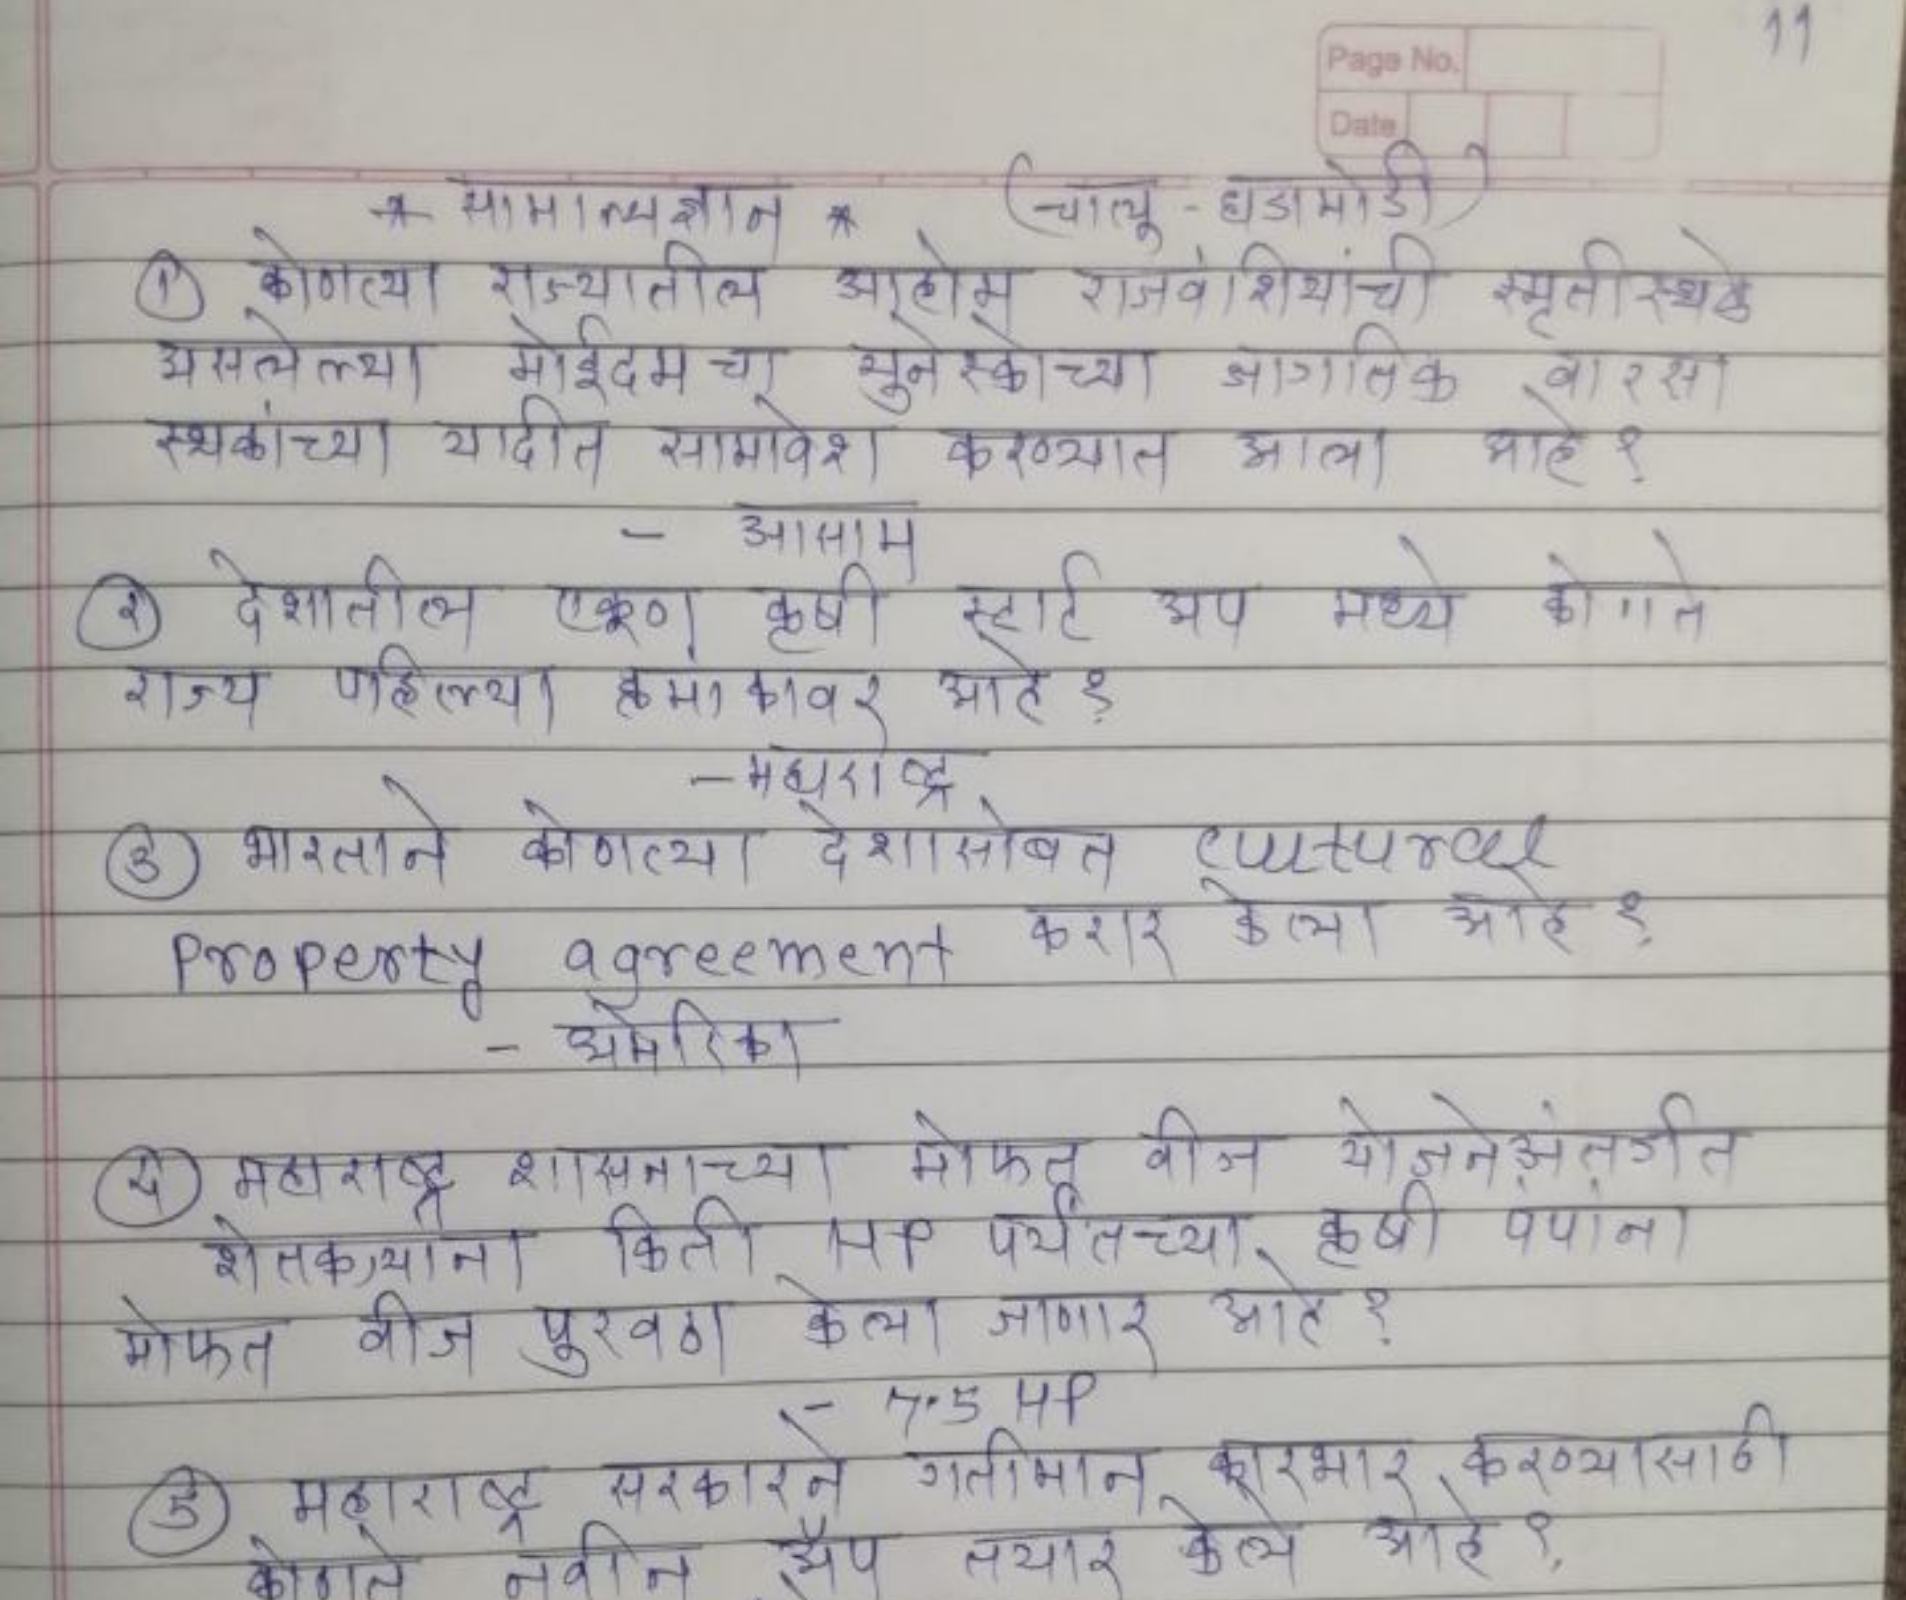 11
Page No.
Date
* सामान्यज्ञान * (चालू - घडामोडी)
① कोणत्या राज्यातील आहोम राजवंशियांची स्मृतीस्थळे
असलेल्या मोईदमचा युनेस्कोच्या जागतिक वारसा
स्थळांच्या यादीत सामावेश करण्यात आला आहे?
- आसाम
② देशातील एकूण कृषी स्टार्ट अप मध्ये कोणते
राज्य पहिल्या क्रमांकावर आहे?
- महाराष्ट्र
③ भारताने कोणत्या देशासोबत cultural
Property agreement करार केला आहे?
- अमेरिका
④ महाराष्ट्र शासनाच्या मोफत वीज योजनेअंतर्गत
शेतकऱ्यांना किती HP पर्यंतच्या कृषी पंपांना
मोफत वीज पुरवठा केला जाणार आहे?
- 7.5 HP
⑤ महाराष्ट्र सरकारने गतीमान कारभार करण्यासाठी
कोणते नवीन ॲप तयार केले आहे?